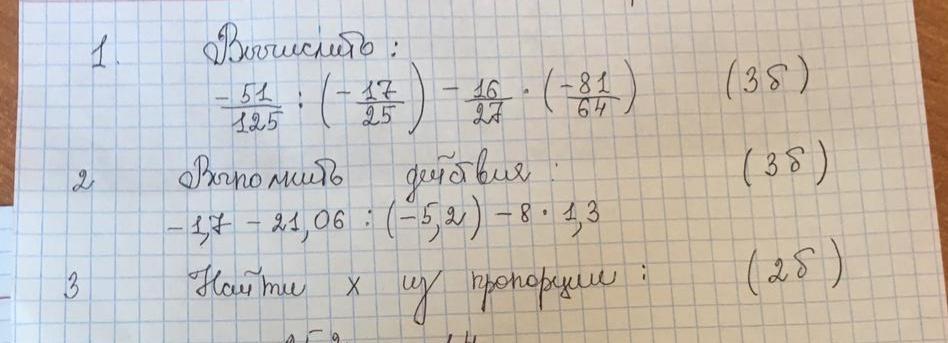 1. Вычислить:
-51/125 : (-17/25) - 16/27 · (-81/64) (3б)
2 Выполнить действия: (3б)
-1,7 - 21,06 : (-5,2) - 8 · 1,3
3 Найти x из пропорции: (2б)